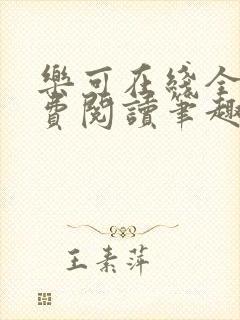 樂可在綫全
費閱讀筆趣
王素萍